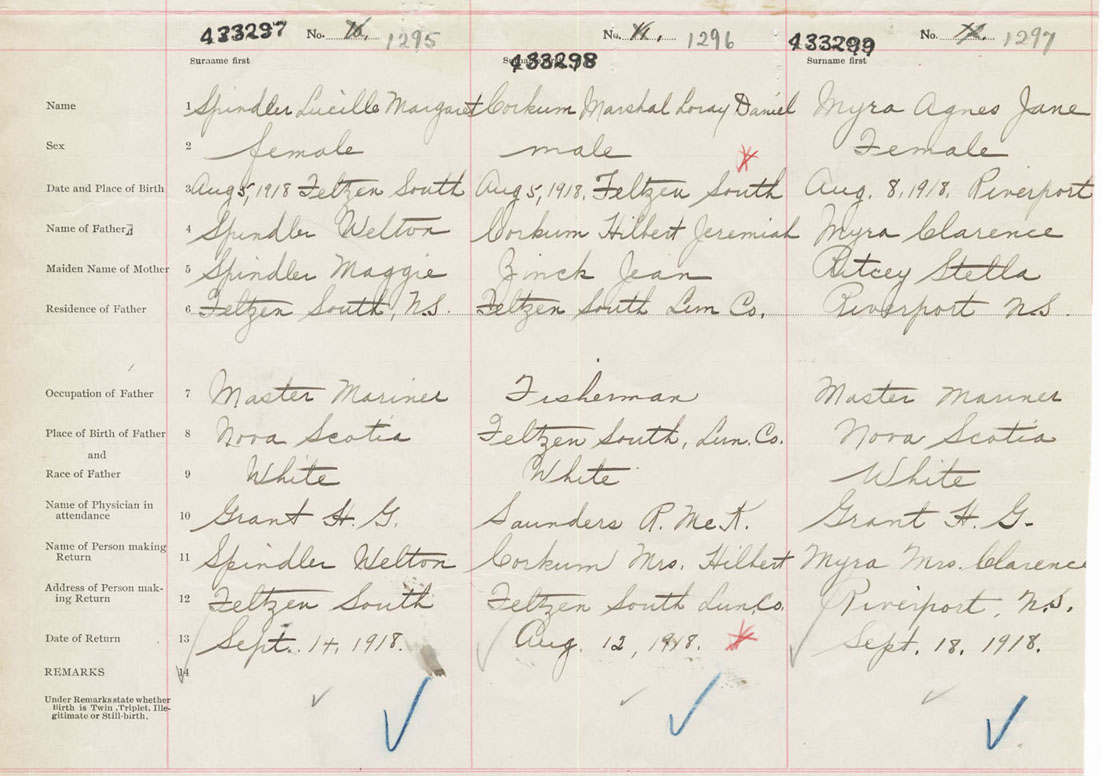 433297 No. 10. 1295 No. 11. 1296 433299 No. 12. 1297
Surname first 433298 Surname first
Name 1 Spindler Lucille Margaret Corkum Marshal Loray Daniel Myra Agnes Jane
Sex 2 female male Female
Date and Place of Birth 3 Aug 5, 1918 Feltzen South Aug 5, 1918, Feltzen South Aug. 8, 1918, Riverport
Name of Father 4 Spindler Welton Corkum Hilbert Jeremiah Myra Clarence
Maiden Name of Mother 5 Spindler Maggie Zinck Jean Ritcey Stella
Residence of Father 6 Feltzen South, N.S. Feltzen South Lun Co. Riverport N.S.
Occupation of Father 7 Master Mariner Fisherman Master Mariner
Place of Birth of Father 8 Nova Scotia Feltzen South, Lun. Co. Nova Scotia
and
Race of Father 9 White White White
Name of Physician in
attendance 10 Grant H. G. Saunders R. McK. Grant H. G.
Name of Person making
Return 11 Spindler Welton Corkum Mrs. Hilbert Myra Mrs. Clarence
Address of Person mak-
ing Return 12 Feltzen South Feltzen South Lun. Co. Riverport, N.S.
Date of Return 13 Sept. 14, 1918. Aug. 12, 1918. Sept. 18, 1918.
REMARKS 14
Under Remarks state whether
Birth is Twin, Triplet, Ille-
gitimate or Still-birth.